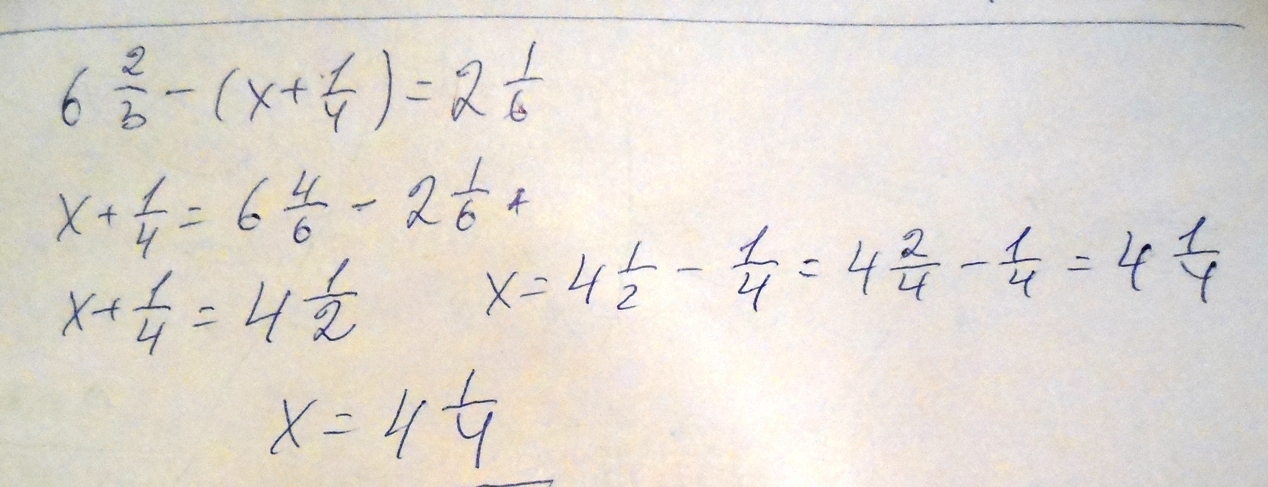 6 2/3 - (x + 1/4) = 2 1/6
x + 1/4 = 6 4/6 - 2 1/6
x + 1/4 = 4 1/2
x = 4 1/2 - 1/4 = 4 2/4 - 1/4 = 4 1/4
x = 4 1/4